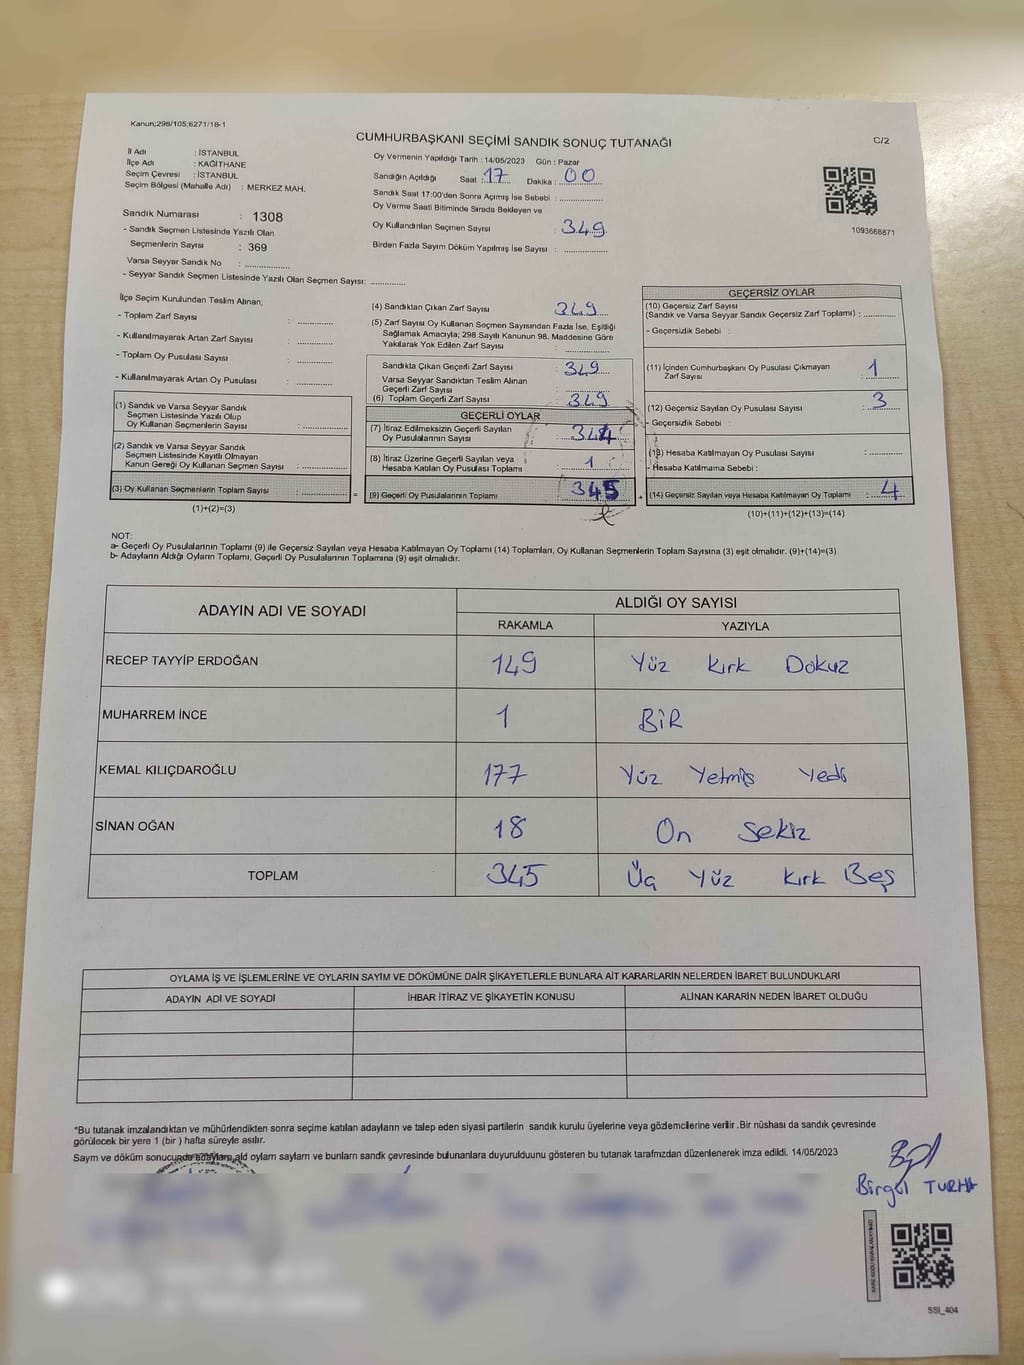 Kanun;298/105;6271/18-1
CUMHURBAŞKANI SEÇİMİ SANDIK SONUÇ TUTANAĞI
C/2
İl Adı : İSTANBUL
İlçe Adı : KAĞITHANE
Seçim Çevresi : İSTANBUL
Seçim Bölgesi (Mahalle Adı) : MERKEZ MAH.
Oy Vermenin Yapıldığı Tarih : 14/05/2023 Gün : Pazar
Sandığın Açıldığı Saat : 17 Dakika : 00
Sandık Saat 17:00'den Sonra Açımış İse Sebebi : ............
Oy Verme Saati Bitiminde Sırada Bekleyen ve
Oy Kullandırılan Seçmen Sayısı : 349
Birden Fazla Sayım Döküm Yapılmış İse Sayısı : ............
1093666871
Sandık Numarası : 1308
- Sandık Seçmen Listesinde Yazılı Olan
Seçmenlerin Sayısı : 369
Varsa Seyyar Sandık No : ............
- Seyyar Sandık Seçmen Listesinde Yazılı Olan Seçmen Sayısı: ............
İlçe Seçim Kurulundan Teslim Alınan;
- Toplam Zarf Sayısı : ............
- Kullanılmayarak Artan Zarf Sayısı : ............
- Toplam Oy Pusulası Sayısı : ............
- Kullanılmayarak Artan Oy Pusulası : ............
(1) Sandık ve Varsa Seyyar Sandık
Seçmen Listesinde Yazılı Olup
Oy Kullanan Seçmenlerin Sayısı : ............
(2) Sandık ve Varsa Seyyar Sandık
Seçmen Listesinde Kayıtlı Olmayan
Kanun Gereği Oy Kullanan Seçmen Sayısı : ............
(3) Oy Kullanan Seçmenlerin Toplam Sayısı : ............ =
(1)+(2)=(3)
(4) Sandıktan Çıkan Zarf Sayısı 349
(5) Zarf Sayısı Oy Kullanan Seçmen Sayısından Fazla İse, Eşitliği
Sağlamak Amacıyla; 298 Sayılı Kanunun 98. Maddesine Göre
Yakılarak Yok Edilen Zarf Sayısı : ............
Sandıkta Çıkan Geçerli Zarf Sayısı : 349
Varsa Seyyar Sandıktan Teslim Alınan
Geçerli Zarf Sayısı : ............
(6) Toplam Geçerli Zarf Sayısı : 349
GEÇERLİ OYLAR
(7) İtiraz Edilmeksizin Geçerli Sayılan
Oy Pusulalarının Sayısı : 344
(8) İtiraz Üzerine Geçerli Sayılan veya
Hesaba Katılan Oy Pusulası Toplamı : 1
(9) Geçerli Oy Pusulalarının Toplamı : 345 +
GEÇERSİZ OYLAR
(10) Geçersiz Zarf Sayısı
(Sandık ve Varsa Seyyar Sandık Geçersiz Zarf Toplamı) : ............
- Geçersizlik Sebebi :
(11) İçinden Cumhurbaşkanı Oy Pusulası Çıkmayan
Zarf Sayısı : 1
(12) Geçersiz Sayılan Oy Pusulası Sayısı : 3
- Geçersizlik Sebebi :
(13) Hesaba Katılmayan Oy Pusulası Sayısı : ............
- Hesaba Katılmama Sebebi :
(14) Geçersiz Sayılan veya Hesaba Katılmayan Oy Toplamı : 4
(10)+(11)+(12)+(13)=(14)
NOT:
a- Geçerli Oy Pusulalarının Toplamı (9) ile Geçersiz Sayılan veya Hesaba Katılmayan Oy Toplamı (14) Toplamları, Oy Kullanan Seçmenlerin Toplam Sayısına (3) eşit olmalıdır. (9)+(14)=(3)
b- Adayların Aldığı Oyların Toplamı, Geçerli Oy Pusulalarının Toplamına (9) eşit olmalıdır.
ADAYIN ADI VE SOYADI
ALDIĞI OY SAYISI
RAKAMLA YAZIYLA
RECEP TAYYİP ERDOĞAN 149 Yüz Kırk Dokuz
MUHARREM İNCE 1 BİR
KEMAL KILIÇDAROĞLU 177 Yüz Yetmiş Yedi
SİNAN OĞAN 18 On Sekiz
TOPLAM 345 Üç Yüz Kırk Beş
OYLAMA İŞ VE İŞLEMLERİNE VE OYLARIN SAYIM VE DÖKÜMÜNE DAİR ŞİKAYETLERLE BUNLARA AİT KARARLARIN NELERDEN İBARET BULUNDUKLARI
ADAYIN ADI VE SOYADI İHBAR İTİRAZ VE ŞİKAYETİN KONUSU ALINAN KARARIN NEDEN İBARET OLDUĞU
*Bu tutanak imzalandıktan ve mühürlendikten sonra seçime katılan adayların ve talep eden siyasi partilerin sandık kurulu üyelerine veya gözlemcilerine verilir .Bir nüshası da sandık çevresinde
görülecek bir yere 1 (bir ) hafta süreyle asılır.
Sayım ve döküm sonucunda adayların aldı oyların sayıların ve bunların sandık çevresinde bulunanlara duyurulduunu gösteren bu tutanak tarafımzdan düzenlenerek imza edildi. 14/05/2023
Birgül TURHA
SSI_404